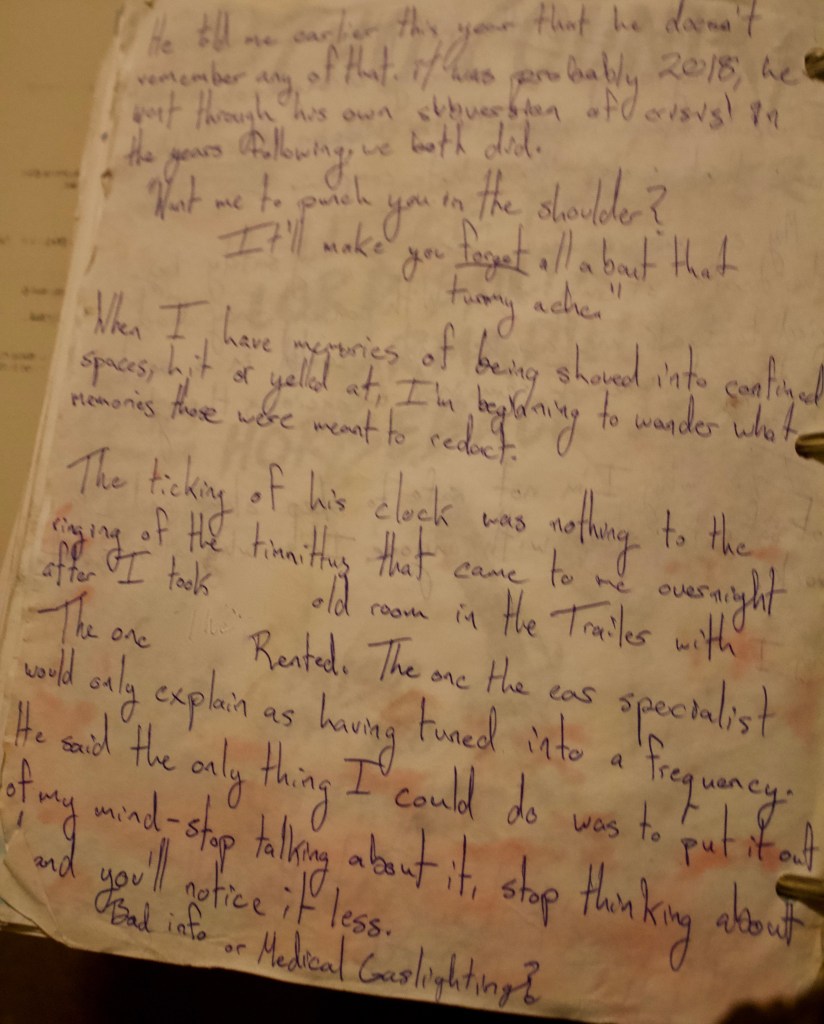 He told me earlier this year that he doesn't
remember any of that. it was probably 2018, he
went through his own subversion of crisis' in
the years following, we both did.
Want me to punch you in the shoulder?
It'll make you forget all about that
tummy ache."
When I have memories of being shoved into confined
spaces, hit or yelled at, I'm beginning to wonder what
memories those were meant to redact.
The ticking of his clock was nothing to the
ringing of the tinnittus that came to me overnight
after I took old room in the Trailer with
The one Rented. The one the ear specialist
would only explain as having tuned into a frequency.
He said the only thing I could do was to put it out
of my mind-stop talking about it, stop thinking about
and you'll notice it less.
Bad info or Medical Gaslighting?